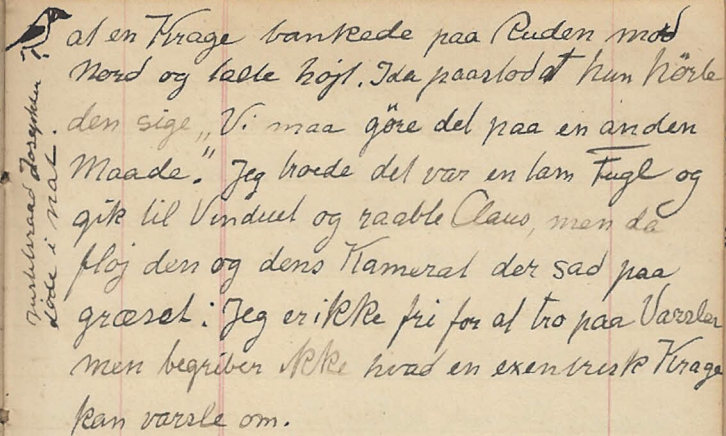 at en Krage bankede paa Ruden mod
Nord og talte højt. Ida paastod at hun hörte
den sige „Vi maa göre det paa en anden
Maade." Jeg troede det var en tam Fugl og
gik til Vinduet og raabte Claus, men da
fløj den og dens Kamerat der sad paa
græsset. Jeg er ikke fri for at tro paa Varsler
men begriber ikke hvad en exentrisk Krage
kan varsle om.
døde i nat.